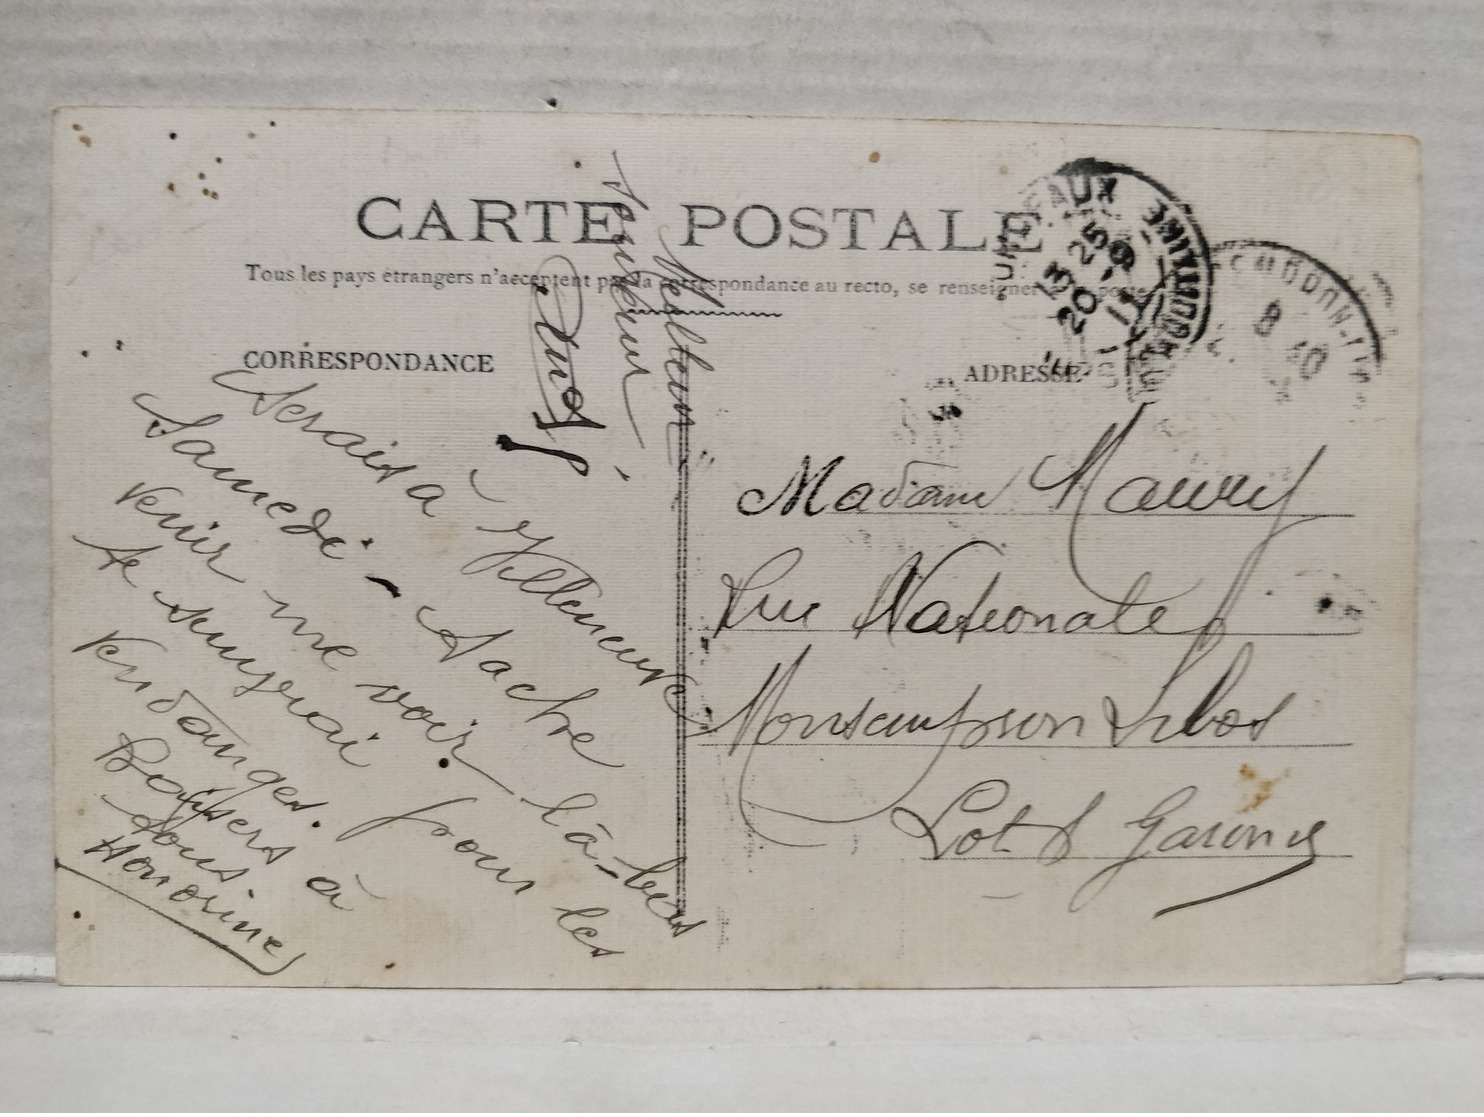 CARTE POSTALE
Tous les pays étrangers n'acceptent pas la correspondance au recto, se renseigner à la poste
CORRESPONDANCE
ADRESSE
Serais à Villeneuve
Samedi - Tache
venir me voir là-bas
Je
pour les
vendanges.
Baisers à
tous.
Honorine
Meilleur
Madame Maury
Rue Nationale
Monsempron Libos
Lot & Garonne
BORDEAUX
13 25
20 - 9
11
8 10